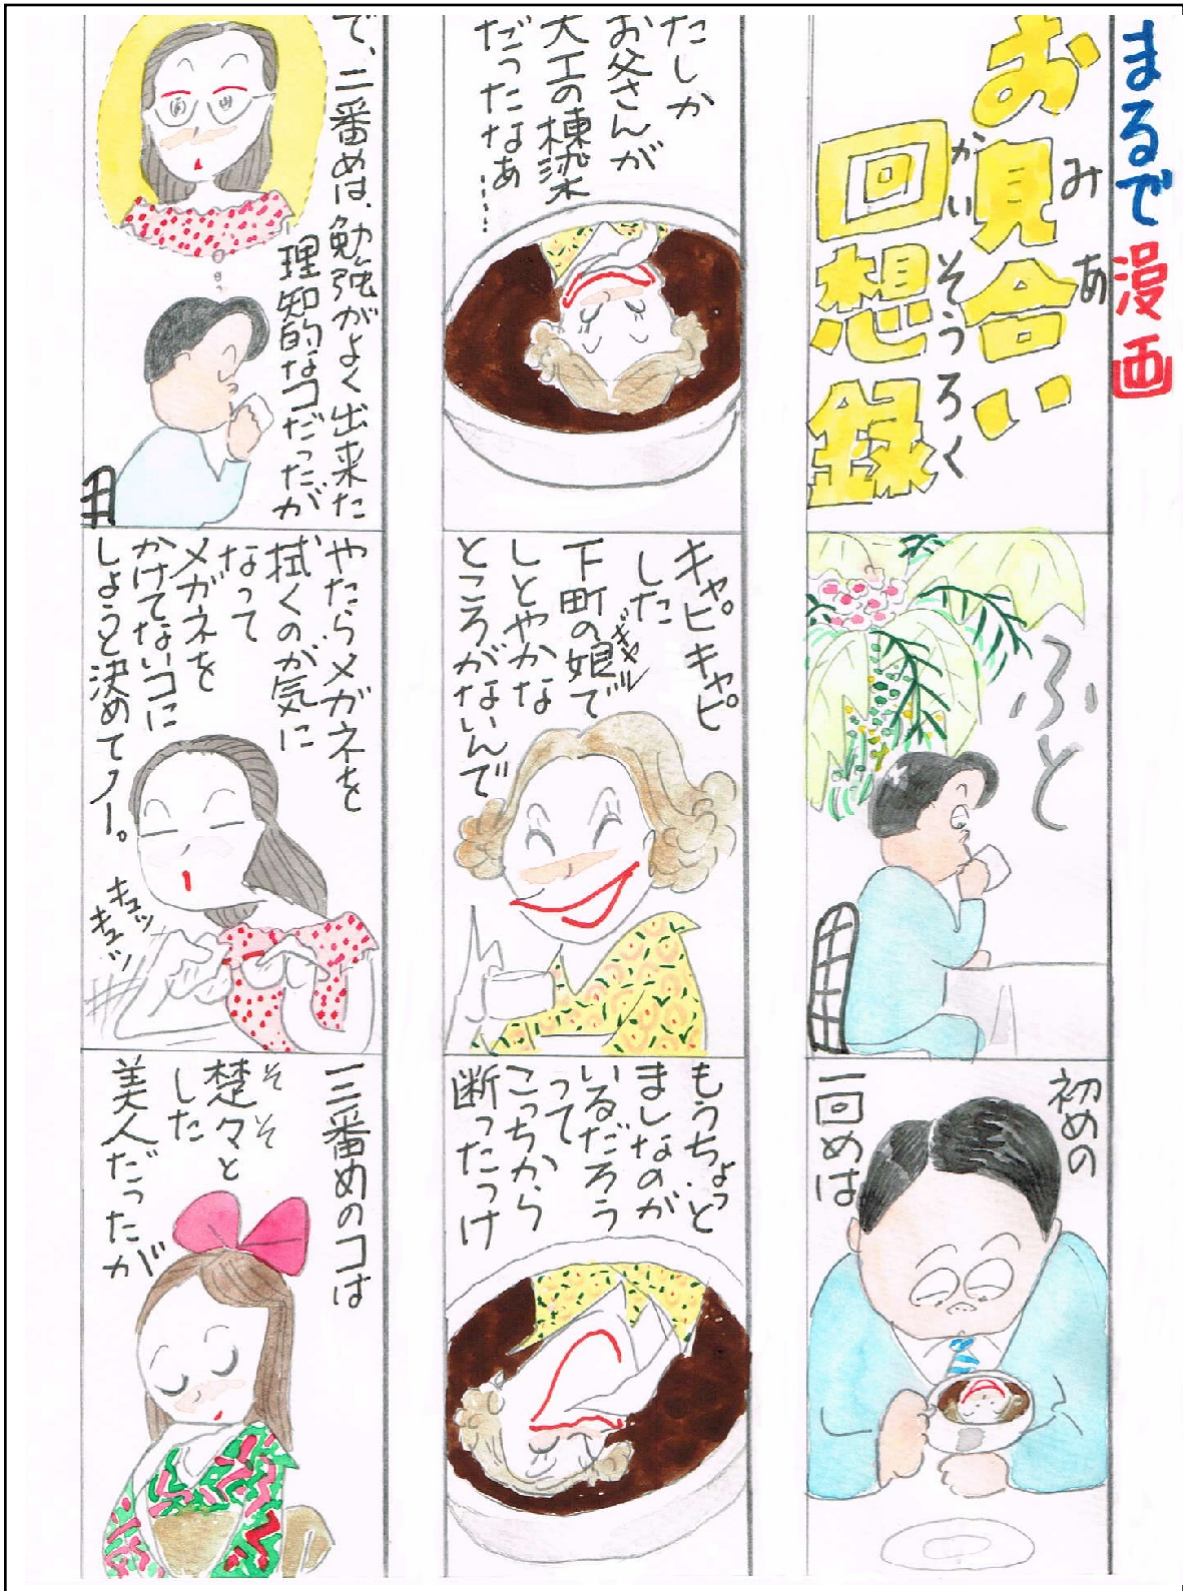 まるで漫画
お見合い
みあ
回想録
かいそうろく
ふと
初めの
一回めは
たしか
お父さんが
大工の棟梁
だったなぁ……
キャピキャピ
した
下町の娘で
ギャル
しとやかな
ところがないんで
もうちょっと
ましなのが
いるだろう
って
こっちから
断ったっけ
で、二番めは、勉強がよく出来た
理知的なコだったが
やたらメガネを
拭くのが気に
なって
メガネを
かけてないコに
しようと決めてノー。
キュッ
キュッ
三番めのコは
楚々と
そそ
した
美人だったが